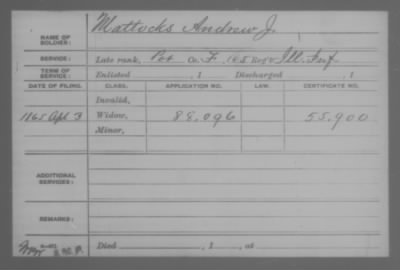 NAME OF SOLDIER: Mattocks Andrew J.
SERVICE: Late rank, Pvt Co. F, 105 Reg't Ill. Inf
TERM OF SERVICE: Enlisted , 1 Discharged , 1
DATE OF FILING. CLASS. APPLICATION NO. LAW. CERTIFICATE NO.
Invalid,
1865 Apl 3 Widow, 88.096 55.900
Minor,
ADDITIONAL SERVICES:
REMARKS:
Died , 1 , at